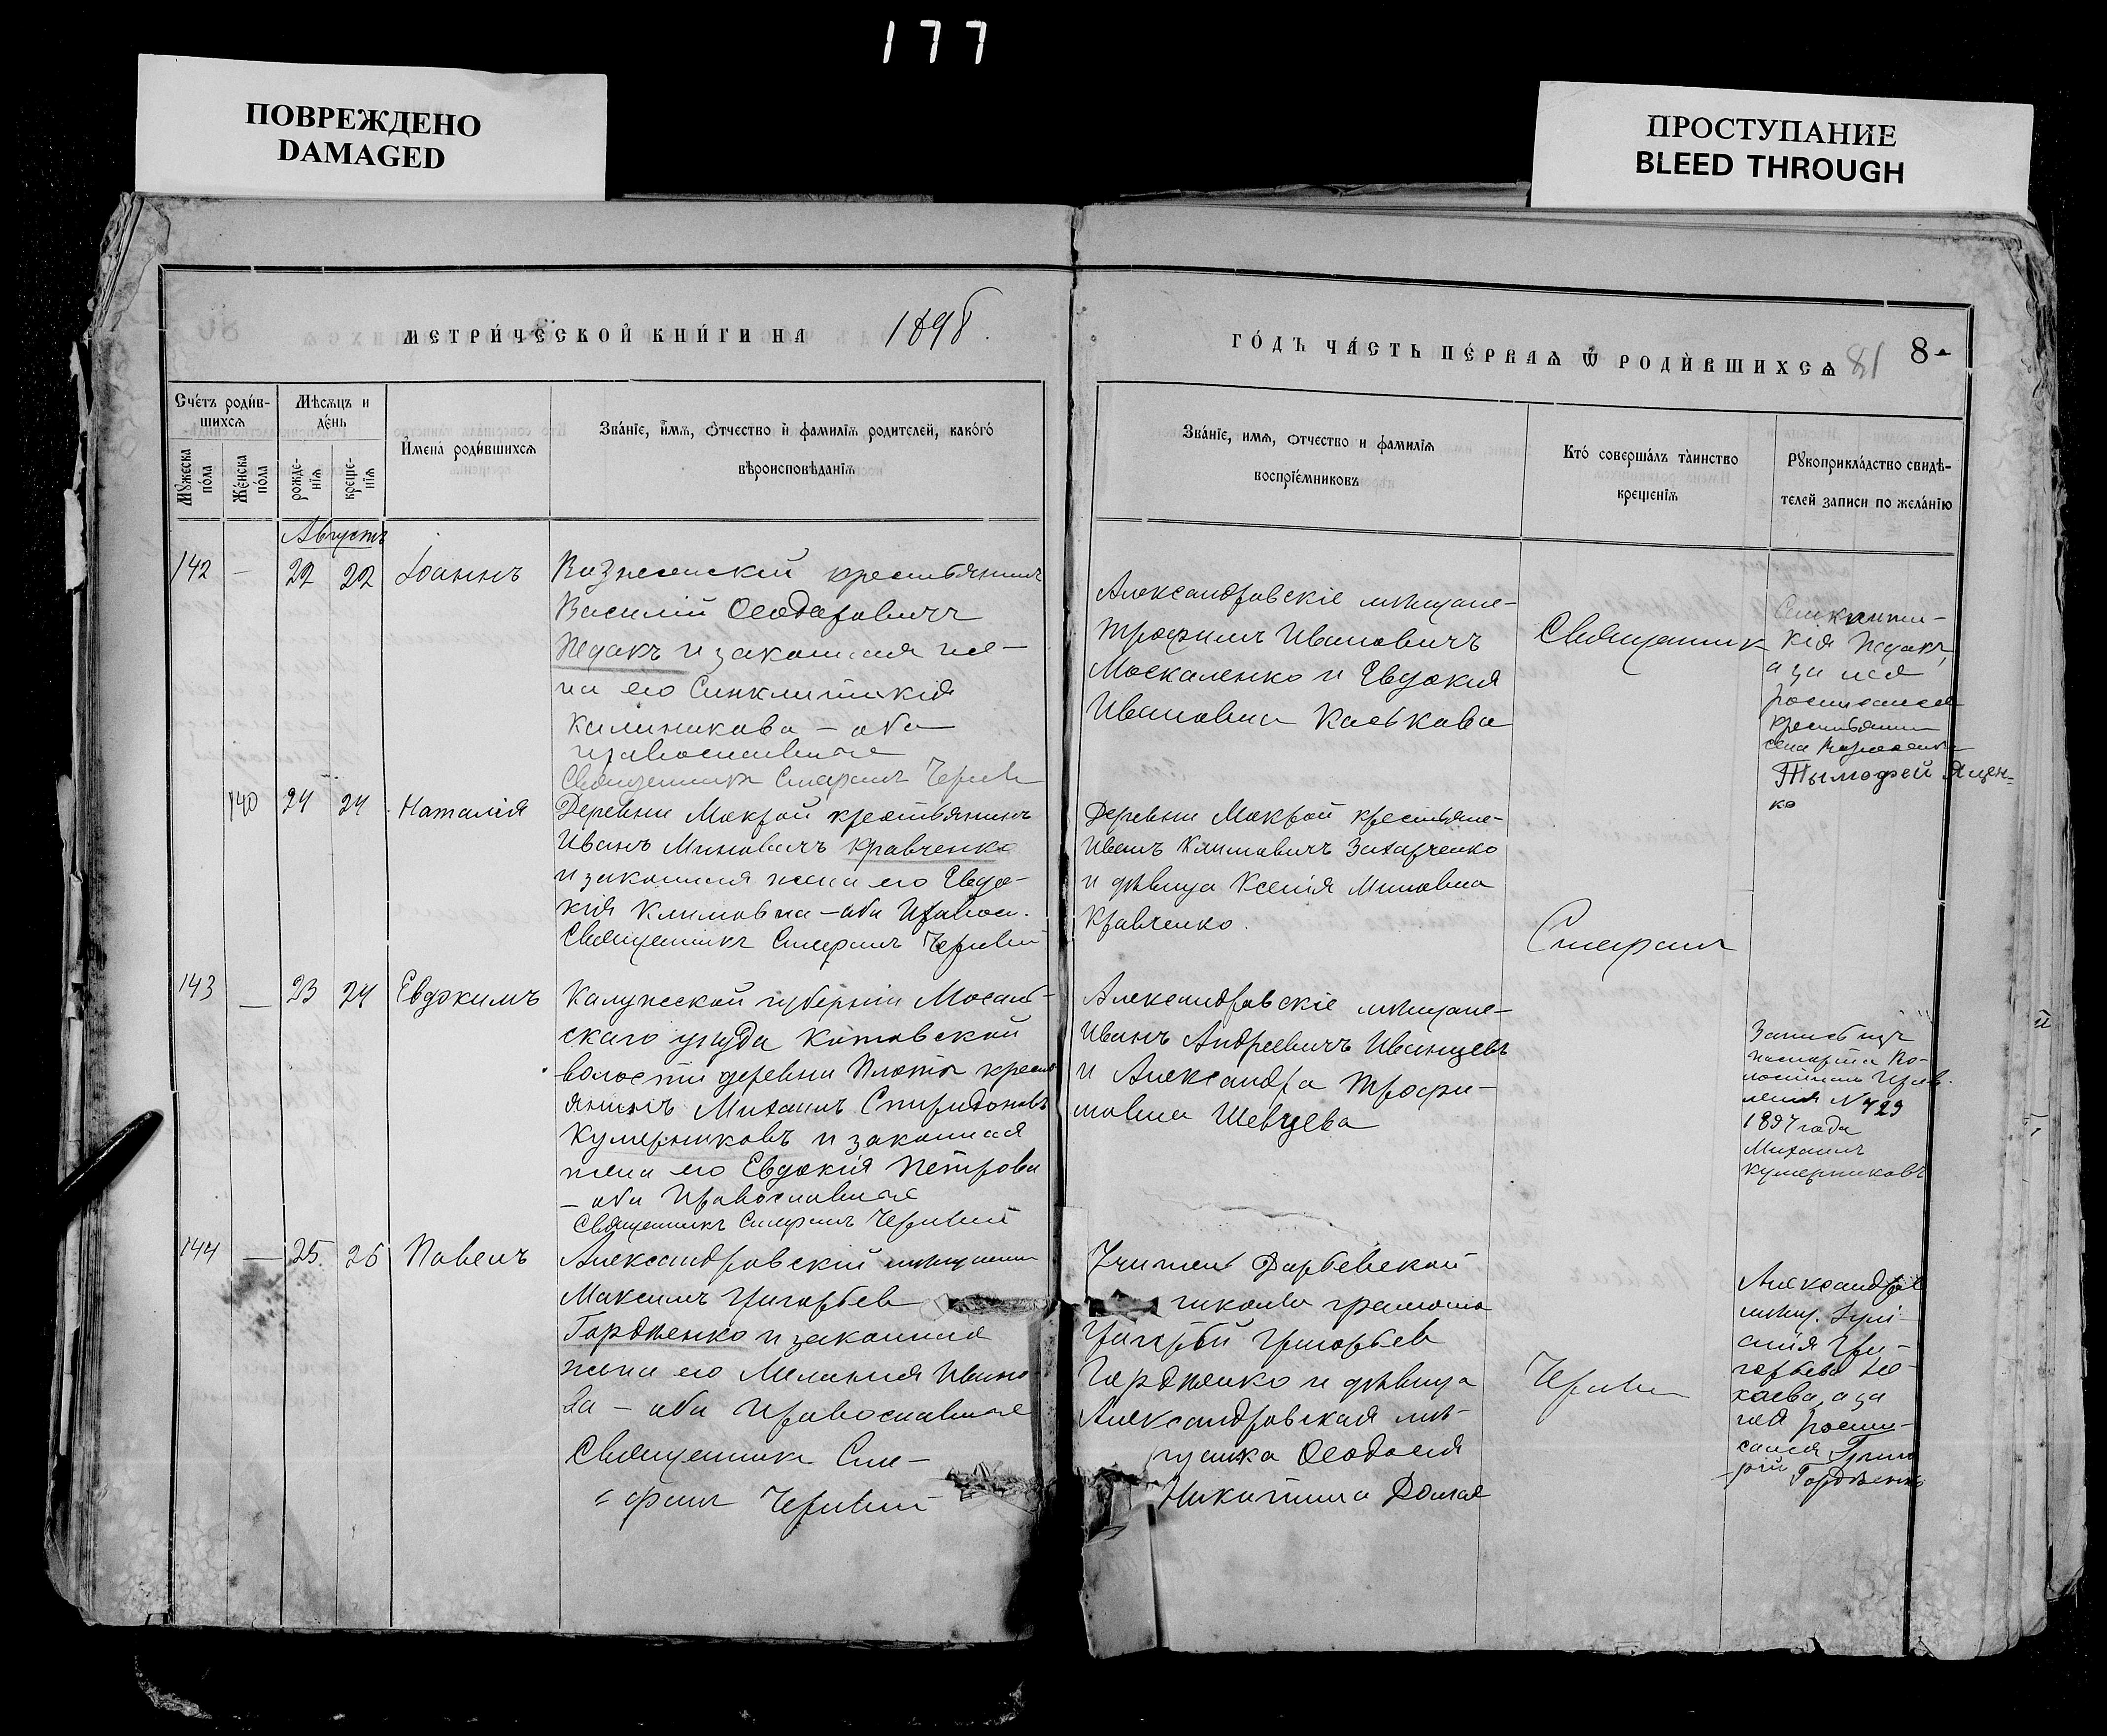 177
ПОВРЕЖДЕНО
DAMAGED
ПРОСТУПАНИЕ
BLEED THROUGH
МЕТРИ́ЧЕСКОЙ КНИ́ГИ НА 1898.
ГО́ДЪ ЧА́СТЬ ПЕ́РВАѦ Ѿ РОДИ́ВШИХСѦ 81 8
Сче́тъ роди́в-
шихсѧ
Мѣсѧцъ и
де́нь
Мꙋжеска
по́ла
Же́нска
по́ла
рожде-
нїѧ
креще-
нїѧ
Имена̀ роди́вшихсѧ
Зва́нїе, и́мѧ, ѻ́тчество и҆ фамилїѧ родителей, како́го
вѣроисповѣ́данїѧ
Зва́нїе, имѧ, ѻтчество и фамилїѧ
воспрїе́мниковъ
Кто̀ соверша́лъ та̀инство
креще́нїѧ
Рꙋкоприкла́дство свидѣ-
телей записи по жела́нїю
Августъ
142 — 22 22 Іоаннъ
Вознесенскій крестьянинъ
Василій Ѳеодоровичъ
Педакъ и законная же-
на его Синклитикія
Калиникова — оба
православные
Священникъ Серафимъ
Александровскіе мѣщане-
Трофимъ Ивановичъ
Москаленко и Евдокія
Ивановна Каськова
Священник
Синклити-
кія Педакъ,
а за нея
росписался
крестьянин
села Вознесенки
Тымофей Яцен-
ко
140 24 24 Наталія
Деревни Мокрой крестьянинъ
Иванъ Миновичъ Кравченко
и законная жена его Евдо-
кія Климовна — оба Правосл.
Священникъ Серафимъ
Деревни Мокрой крестьяне-
Иванъ Климовичъ Захарченко
и дѣвица Ксенія Миновна
Кравченко.
Серафим
143 — 23 24 Евдокимъ
Калужской губерніи Мосаль-
скаго уѣзда Котовской
волости деревни Плоты крест
янинъ Михаилъ Спиридоновъ
Кумерниковъ и законная
жена его Евдокія Петрова
— оба Православные
Священникъ Серафимъ
Александровскіе мѣщане-
Иванъ Андреевичъ Иванцевъ
и Александра Трофи-
мовна Шевцева
Запись изъ
паспорта Во-
лостнаго Прав.
ленія N 729
1897 года
Михаилъ
Кумерниковъ
144 — 25. 26 Павелъ
Александровскій мѣщанин
Максимъ Григорьев
Гордѣенко и законная
жена его Меланія Ивано
ва — оба Православные
Священникъ Се-
рафим
Учитель
школы грамоты
Григорій Григорьев
Гордѣенко и дѣвица
Александровская мѣ-
щанка Ѳеодосія
Никитина
Александров
мѣщ.
Гри-
горьева
а за
нея роспи-
сался Григо
рій Гордѣенко